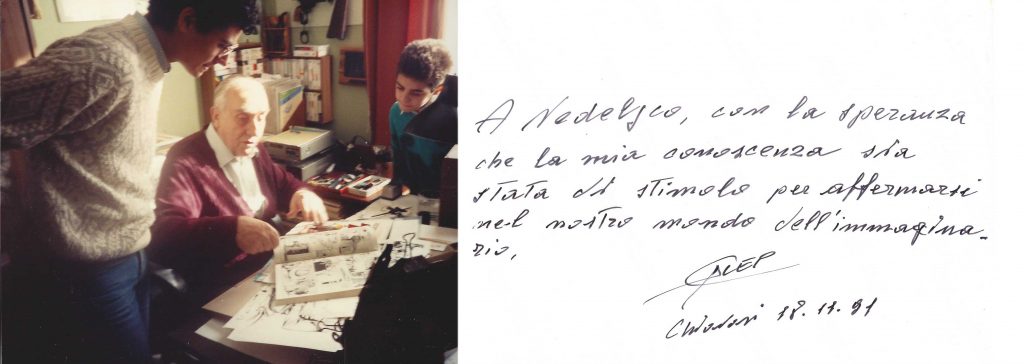 A Nedeljco, con la speranza
che la mia conoscenza sia
stata di stimolo per affermarsi
nel nostro mondo dell'immagina-
rio,
GALEP
Chiavari 18.11.91